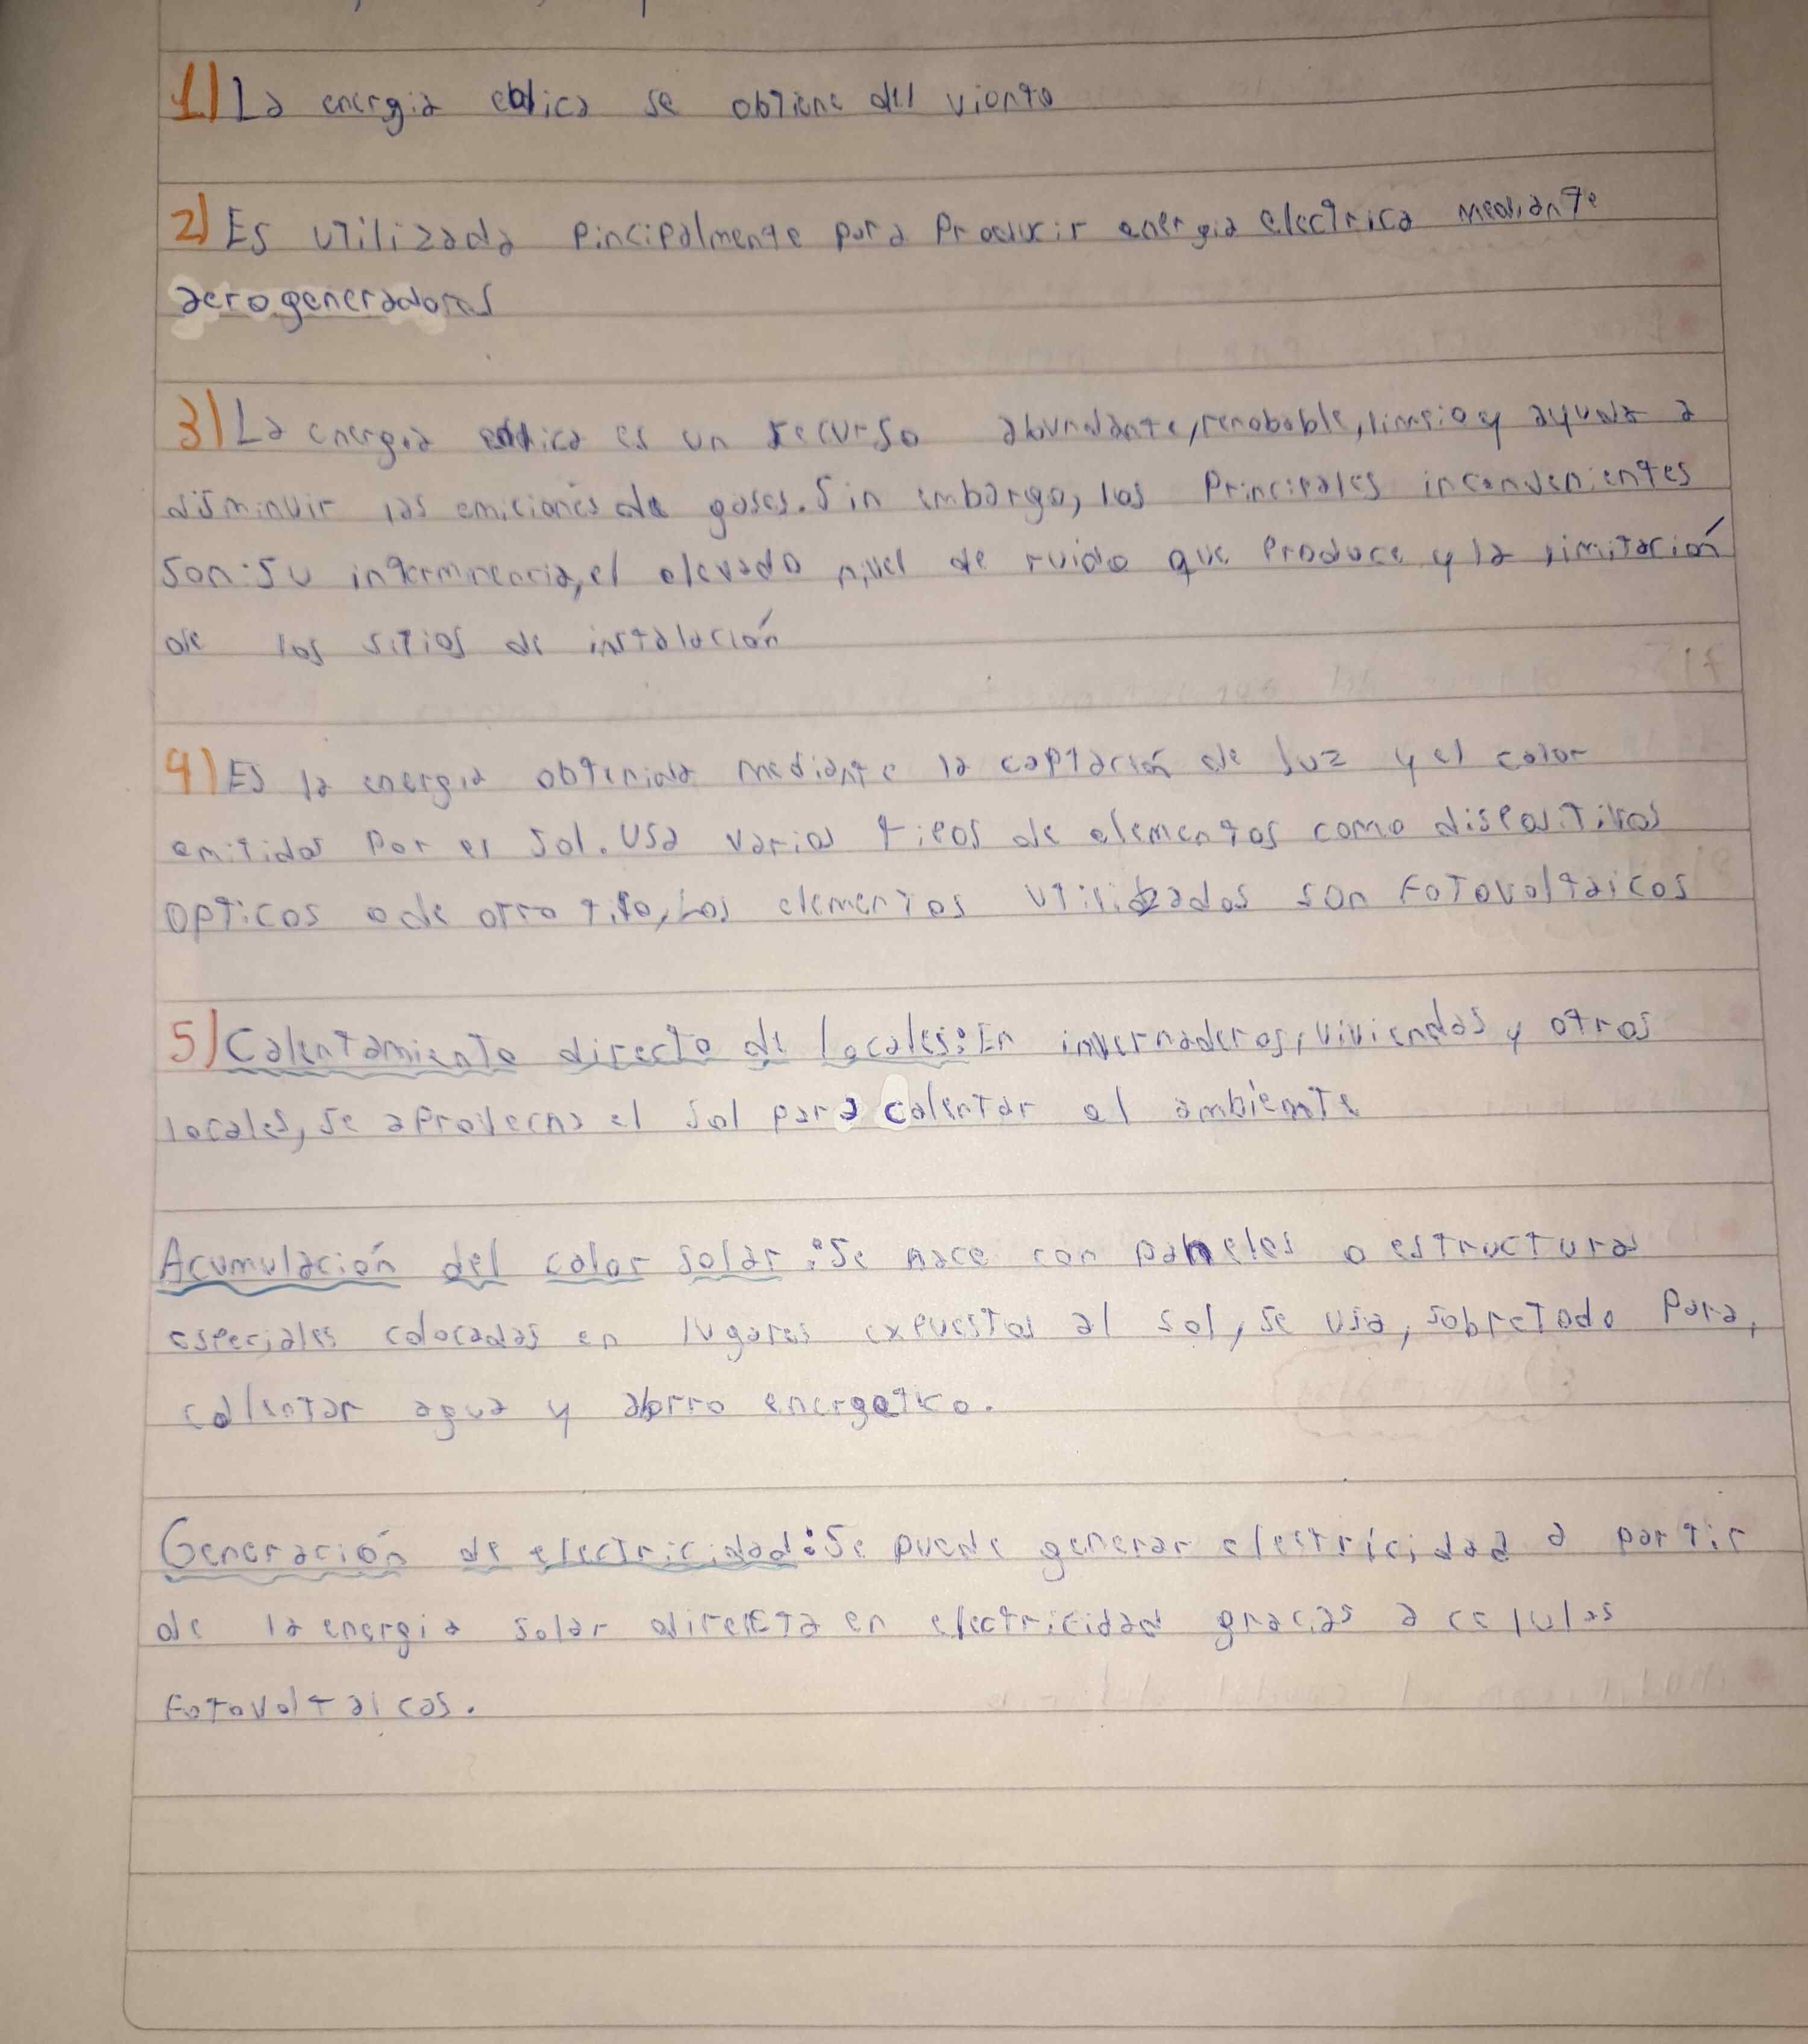 1) La energia eolica se obtiene del viento
2) Es utilizada pincipalmente para producir energia electrica mediante
aerogeneradores
3) La energia eolica es un recurso abundante, renobable, limpio y ayuda a
disminuir las emiciones de gases. Sin embargo, los principales inconvenientes
son: su interminencia, el elevado nivel de ruido que produce y la limitación
de los sitios de instalación
4) Es la energia obtenida mediante la captación de luz y el calor
emitidos por el sol. Usa varios tipos de elementos como dispositivos
opticos o de otro tipo, Los elementos utilizados son fotovoltaicos
5) Calentamiento directo de locales: En invernaderos, viviendas y otros
locales, se aprovecha el sol para calentar el ambiente
Acumulación del calor solar: Se hace con paneles o estructuras
especiales colocadas en lugares expuestos al sol, se usa, sobretodo para,
calentar agua y ahorro energetico.
Generación de electricidad: Se puede generar electricidad a partir
de la energia solar directa en electricidad gracias a celulas
fotovoltaicas.